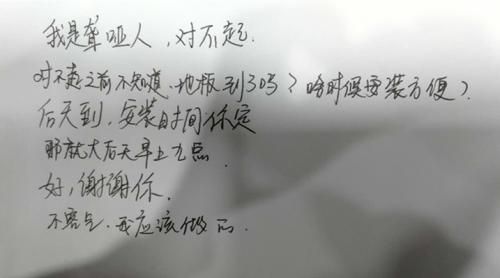 我是聋哑人,对不起.
对不起之前不知道.地板到了吗?啥时候安装方便?
后天到,安装时间你定
那就大后天早上九点.
好,谢谢你.
不客气.我应该做的.